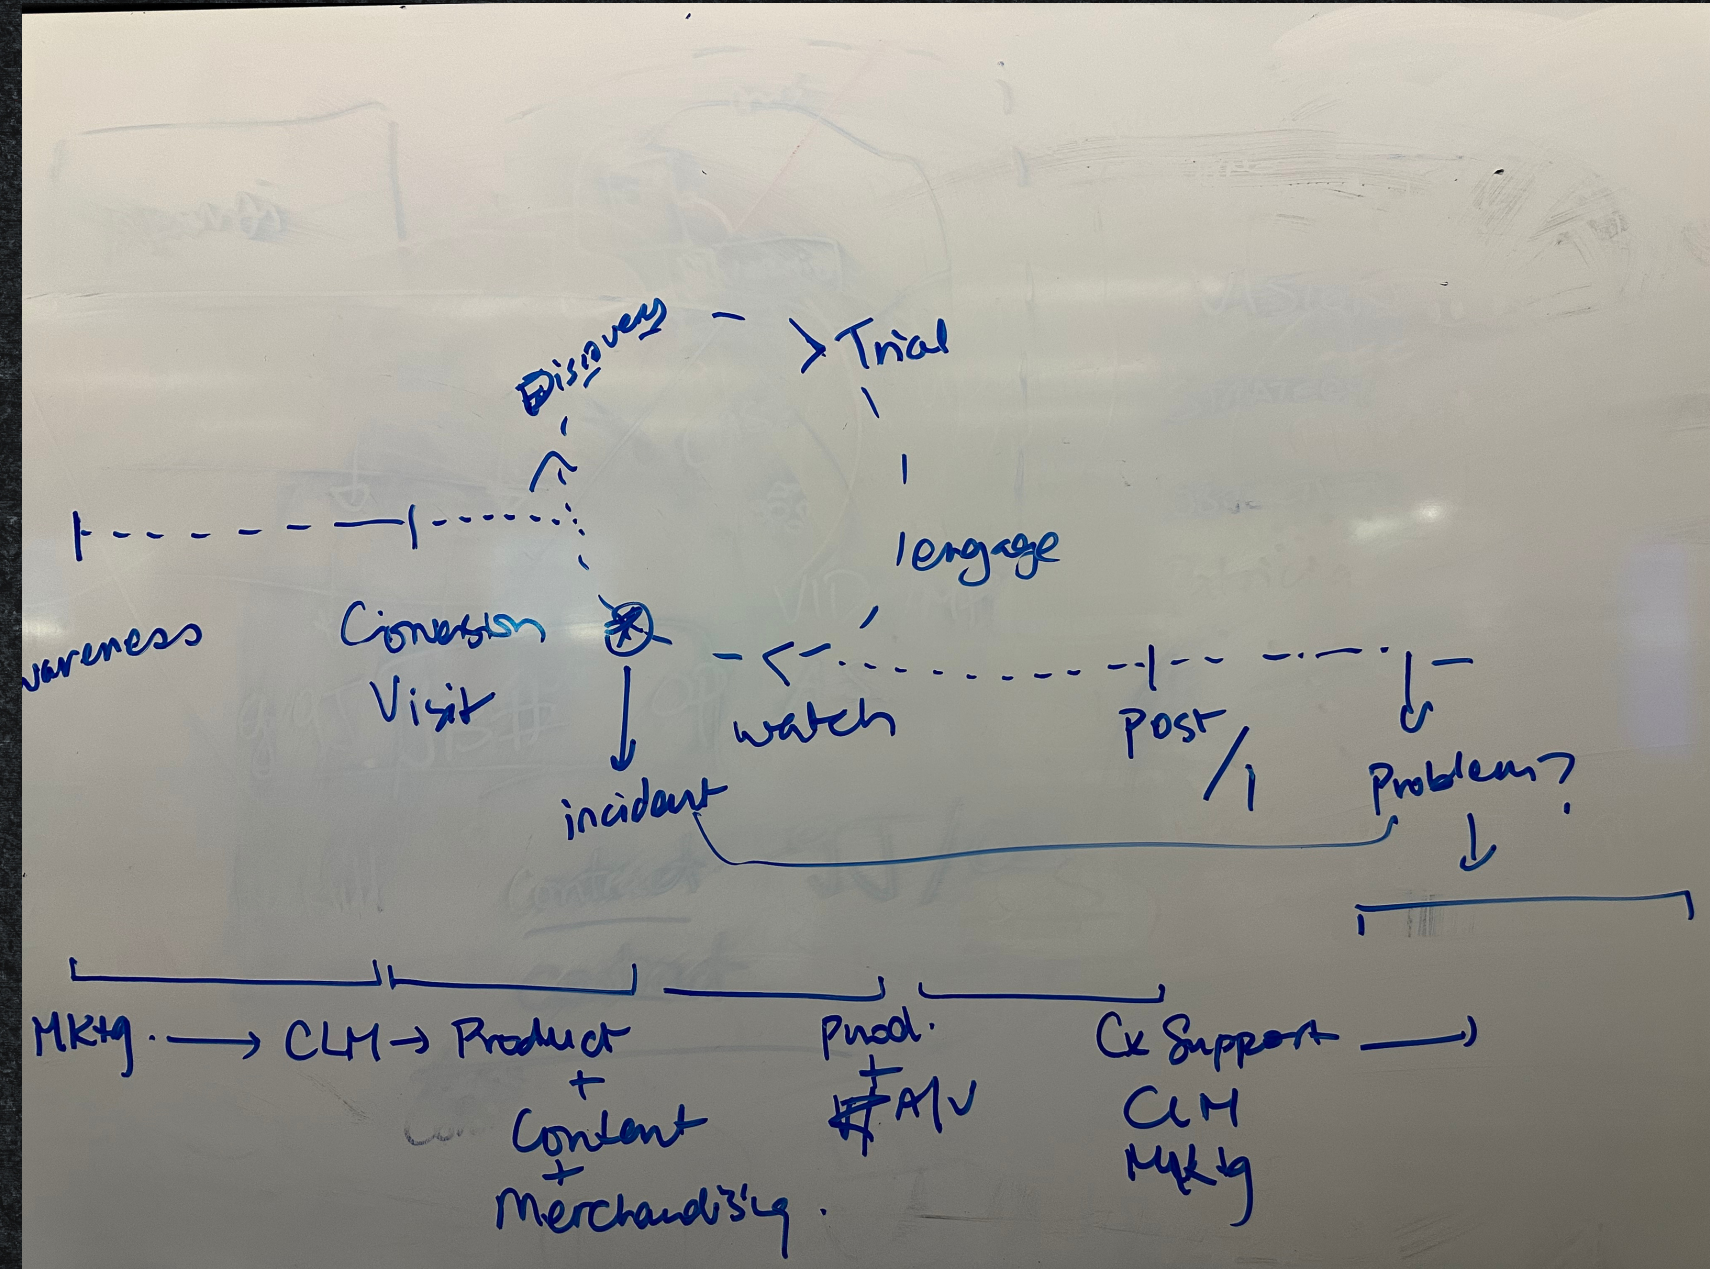 Discovery
Trial
engage
wareness
Conversion
Visit
watch
post
/
Problem?
incident
Mktg. → CLM → Product
+
Content
+
Merchandising.
Prod.
+
A/V
Cx Support →
CLM
Mktg